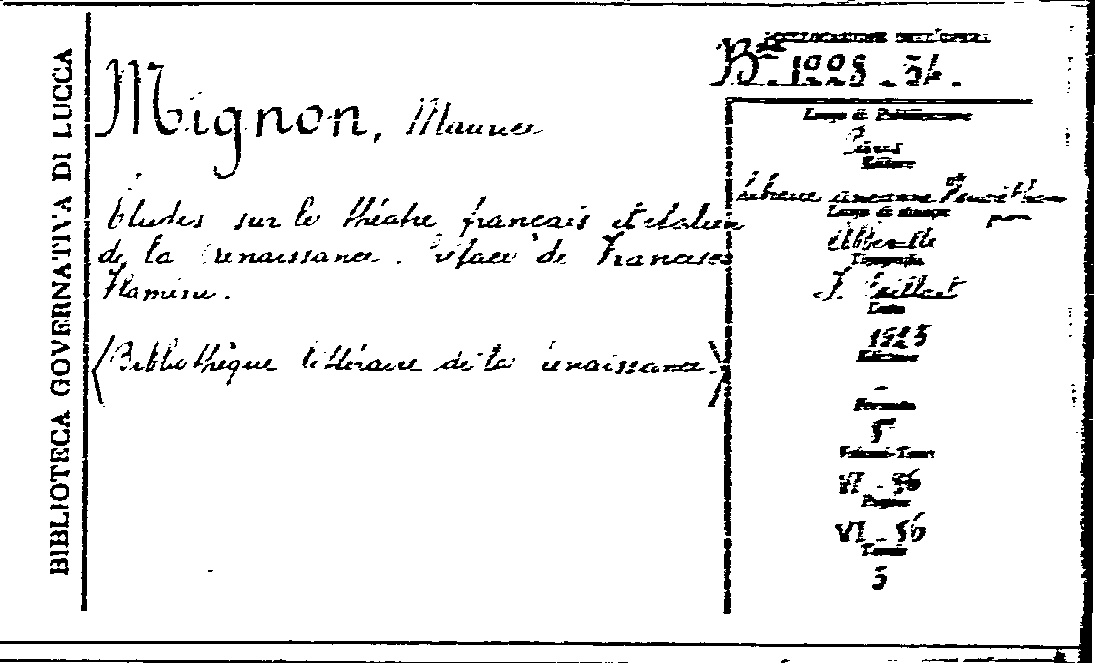 BIBLIOTECA GOVERNATIVA DI LUCCA
COLLOCAZIONE DELL'OPERA
B. 1228 - 34 -
Mignon, Maurice
Études sur le théatre français et italien
de la renaissance. Préface de Francesco
Flamini.
(Bibliothèque littéraire de la renaissance.)
Luogo di Pubblicazione
Paris
Editore
librairie ancienne
Luogo di stampa
Abbeville
Tipografia
F. Paillart
Data
1923
Edizione
-
Formato
8
Volumi-Tomi
VI - 86
Pagine
VI - 86
Tavole
3